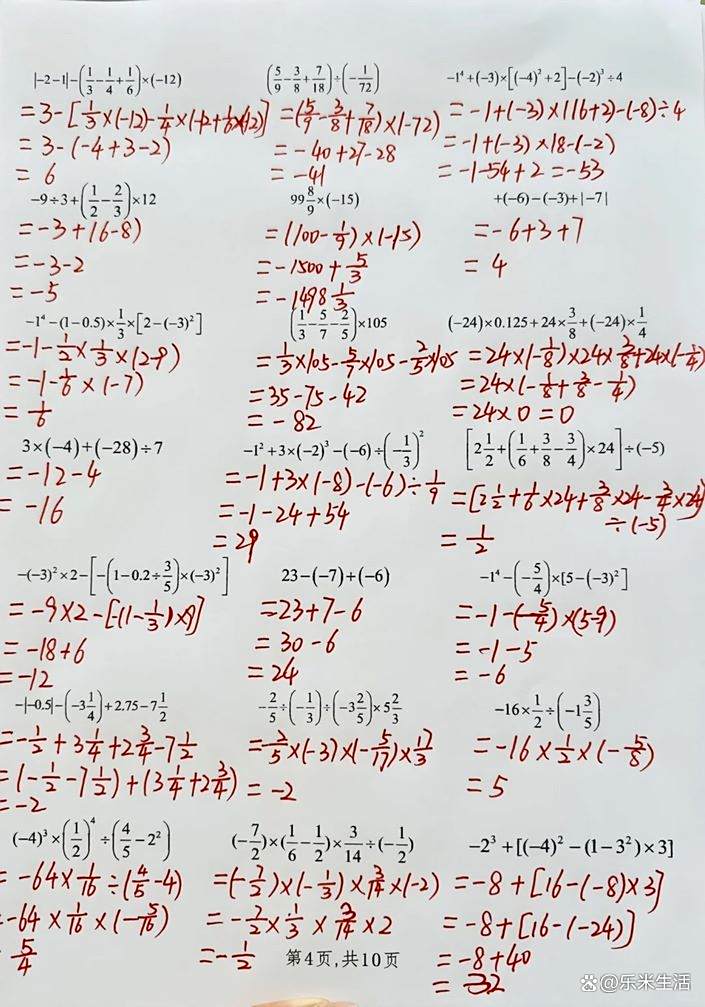 |-2-1|-(1/3-1/4+1/6)×(-12)
=3-[1/3×(-12)-1/4×(-12+1/6×(-12)]
=3-(-4+3-2)
=6
(5/9-3/8+7/18)÷(-1/72)
=(5/9-3/8+7/18)×(-72)
=-40+27-28
=-41
-1⁴+(-3)×[(-4)²+2]-(-2)³÷4
=-1+(-3)×(16+2)-(-8)÷4
=-1+(-3)×18-(-2)
=-1-54+2=-53
-9÷3+(1/2-2/3)×12
=-3+(6-8)
=-3-2
=-5
99 8/9×(-15)
=(100-1/9)×(-15)
=-1500+5/3
=-1498 1/3
+(-6)-(-3)+|-7|
=-6+3+7
=4
-1⁴-(1-0.5)×1/3×[2-(-3)²]
=-1-1/2×1/3×(2-9)
=-1-1/6×(-7)
=1/6
(1/3-5/7-2/5)×105
=1/3×105-5/7×105-2/5×105
=35-75-42
=-82
(-24)×0.125+24×3/8+(-24)×1/4
=24×(-1/8)×24×3/8+24×(-1/4)
=24×(-1/8+3/8-1/4)
=24×0=0
3×(-4)+(-28)÷7
=-12-4
=-16
-1²+3×(-2)³-(-6)÷(-1/3)²
=-1+3×(-8)-(-6)÷1/9
=-1-24+54
=29
[2 1/2+(1/6+3/8-3/4)×24]÷(-5)
=[2 1/2+1/6×24+3/8×24-3/4×24]
÷(-5)
=1/2
-(-3)²×2-[-(1-0.2÷3/5)×(-3)²]
=-9×2-[-(1-1/3)×9]
=-18+6
=-12
23-(-7)+(-6)
=23+7-6
=30-6
=24
-1⁴-(-5/4)×[5-(-3)²]
=-1-(-5/4)×(5-9)
=-1-5
=-6
-|-0.5|-(-3 1/4)+2.75-7 1/2
=-1/2+3 1/4+2 3/4-7 1/2
=(-1/2-7 1/2)+(3 1/4+2 3/4)
=-2
-2/5÷(-1/3)÷(-3 2/5)×5 2/3
=-2/5×(-3)×(-5/17)×17/3
=-2
-16×1/2÷(-1 3/5)
=-16×1/2×(-5/8)
=5
(-4)³×(1/2)⁴÷(4/5-2²)
=-64×1/16÷(4/5-4)
-64×1/16×(-5/16)
5/4
(-7/2)×(1/6-1/2)×3/14÷(-1/2)
=(-7/2)×(-1/3)×3/14×(-2)
=-7/2×1/3×3/14×2
=-1/2
-2³+[(-4)²-(1-3²)×3]
=-8+[16-(-8)×3]
=-8+[16-(-24)]
=-8+40
=32
第4页,共10页
@乐米生活